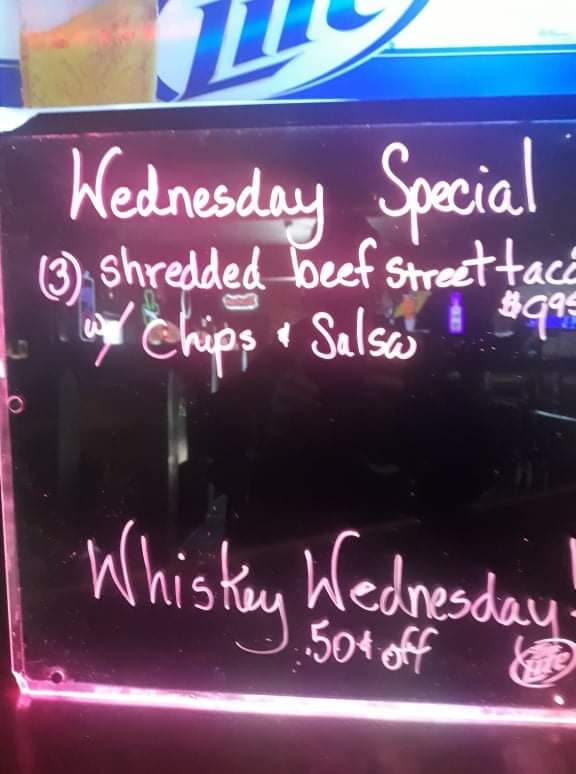 Lite
Wednesday Special
(3) shredded beef street taco
$9.95
w/ Chips & Salsa
Whiskey Wednesday!
.50¢ off
Lite